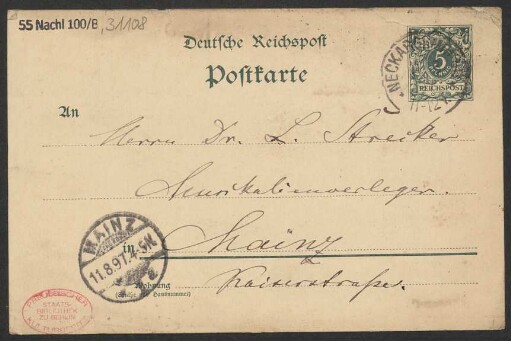 55 Nachl 100/B, 31108
Deutsche Reichspost
Postkarte
5
REICHSPOST
11-12
An
Herrn Dr. L. Strecker
Musikalienverleger.
in Mainz
MAINZ
11.8.97. 4-5N
e
Kaiserstraße.
Wohnung
(Straße und Hausnummer)
STAATS-
BIBLIOTHEK
ZU BERLIN